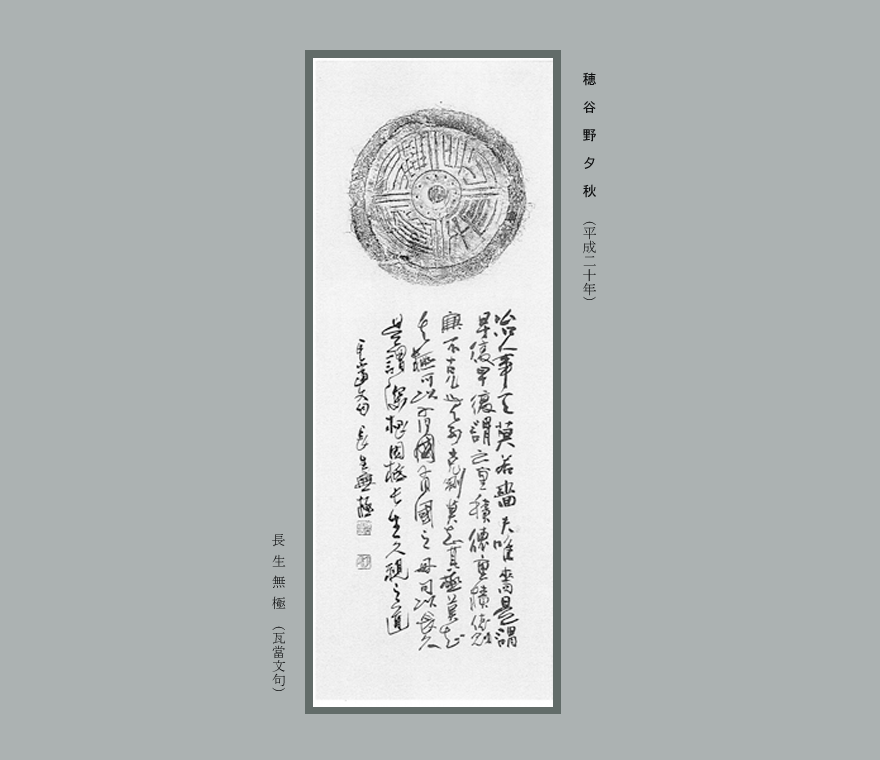 穂谷野夕秋 (平成二十年)
長生無極
治人事天莫若嗇夫唯嗇是謂
早復早復謂之重積德重積德則
無不克無不克則莫知其極莫知
其極可以有國有國之母可以長久
是謂深根固柢長生久視之道
瓦當文 長生無極
長生無極 (瓦當文句)